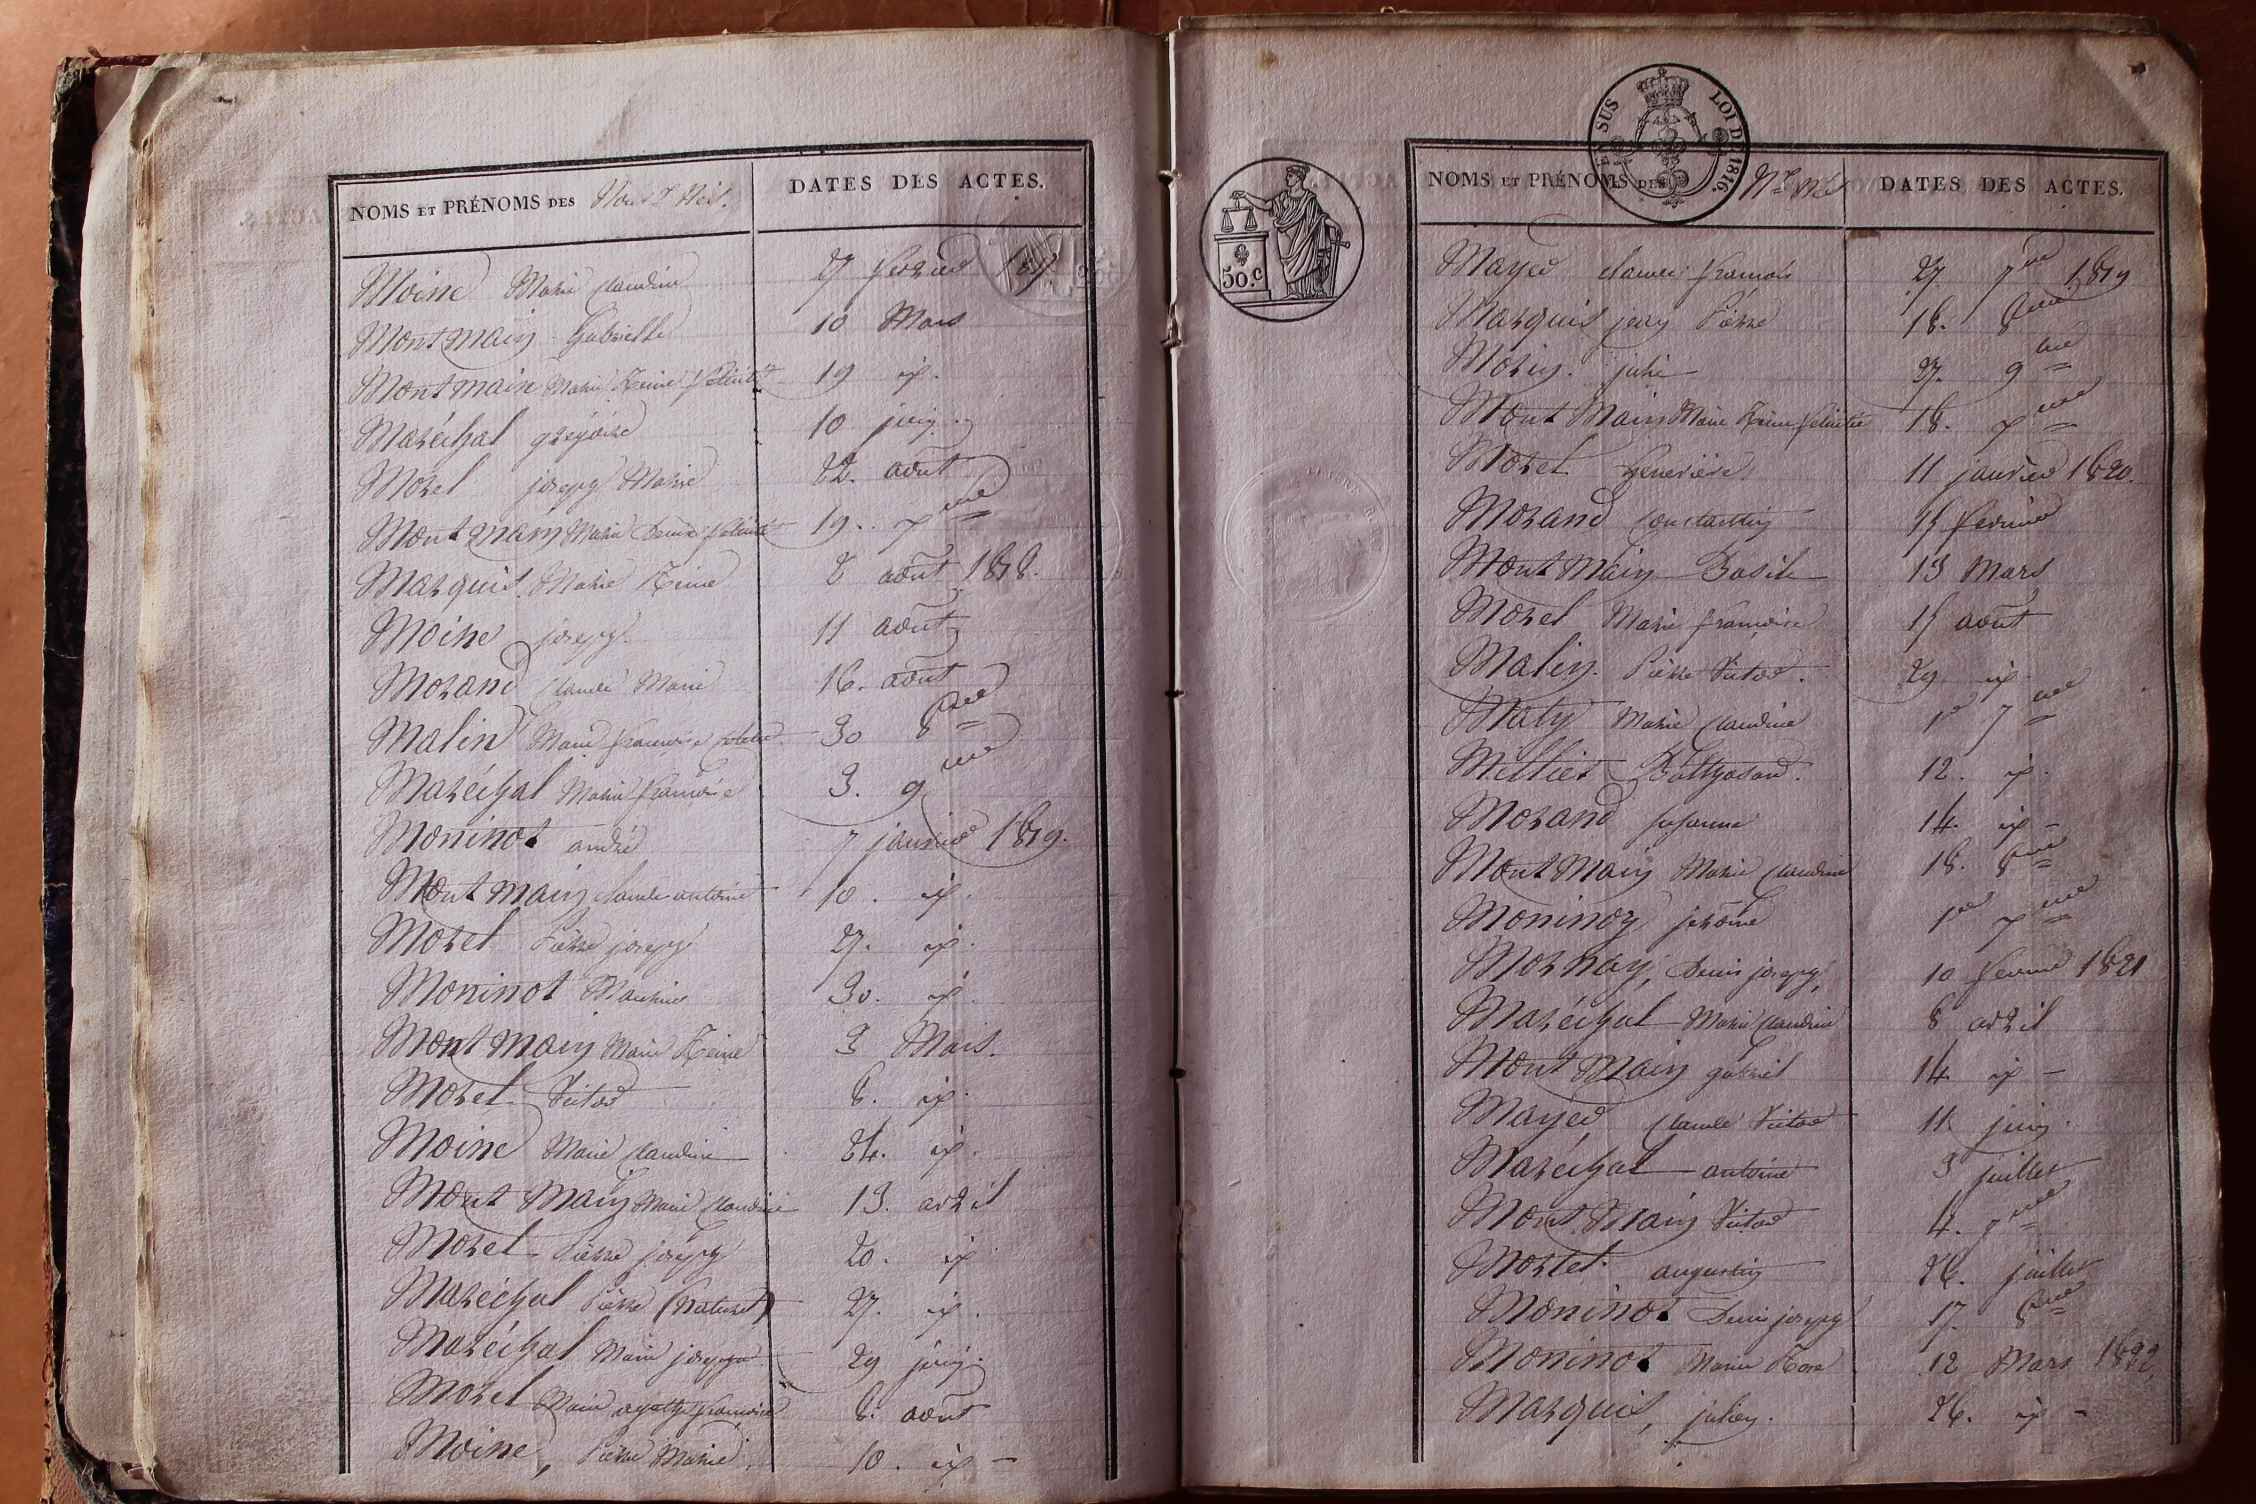 NOMS ET PRÉNOMS DES Nouv. Nés. DATES DES ACTES.
Moine Marie Claudine 27 février 1817.
Montmain Gabrielle 10 Mars
Montmain Marie Reine félicité 19 id.
Maréchal grégoire 10 juin.
Morel joseph Marie 22. août
Montmain Marie Denise félicité 19. Xbre
Marquis. Marie Reine 2 août 1818.
Moine joseph 11 août
Morand Claude Marie 16. août
Malin Marie françoise 30 8bre
Maréchal Marie françoise 3. 9bre
Moninot andré 7 janvier 1819.
Mont main claude antoine 10. id.
Morel Pierre joseph 27. id.
Moninot Maurice 30. id.
Mont main Marie Reine 3 Mars.
Morel Victor 8. id.
Moine Marie Claudine 24. id.
Mont Main Marie Claudine 13. avril
Morel Pierre joseph 20. id
Maréchal Pierre (naturel) 27. id.
Maréchal Marie josephe 29 juin.
Morel Marie agathe françoise 8. août
Moine, Pierre Marie. 10. id -
EN SUS LOI DE 1816.
50.c
NOMS ET PRÉNOMS DES Nx Nés DATES DES ACTES.
Mayer claude françois 27. 7bre 1819
Marquis jean Pierre 18. 8bre
Morin. julie 27. 9bre
Mont Main Marie Reine félicitée 18. Xbre
Morel Geneviève 11 janvier 1820.
Morand Constantin 15 février
Mont Main Basile 13 Mars
Morel Marie françoise 15 août
Malin. Pierre Victor. 29 id.
Maty Marie Claudine 1er 7bre
Millier Balthasard. 12. id.
Morand Susanne 14. id -
Mont Main Marie Claudine 18. 8bre
Moninot jérôme 1er Xbre
Mornay, Denis joseph, 10 février 1821
Maréchal Marie Claudine 8 avril
Mont Main gabriel 14 id -
Mayer Claude Victor 11 juin.
Maréchal antoine 3 juillet
Mont Main Victor 4. 7bre
Mortet augustin 26. juillet
Moninot Denis joseph 17. 8bre
Moninot Marie Rose 12 Mars 1822,
Marquis, julien. 26. id -